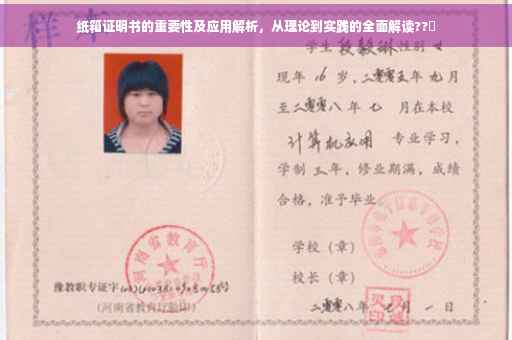 纸箱证明书的重要性及应用解析，从理论到实践的全面解读??
样本
学生 段毅琳 性别 女
现年 16 岁，二零零五年 九月
至二零零八年 七 月在本校
计算机应用 专业学习，
学制 三 年，修业期满，成绩
合格，准予毕业。
学校（章）
校长（章）
二零零八年 七 月 一 日
河南省教育厅
豫教职专证字
（河南省教育厅验印）